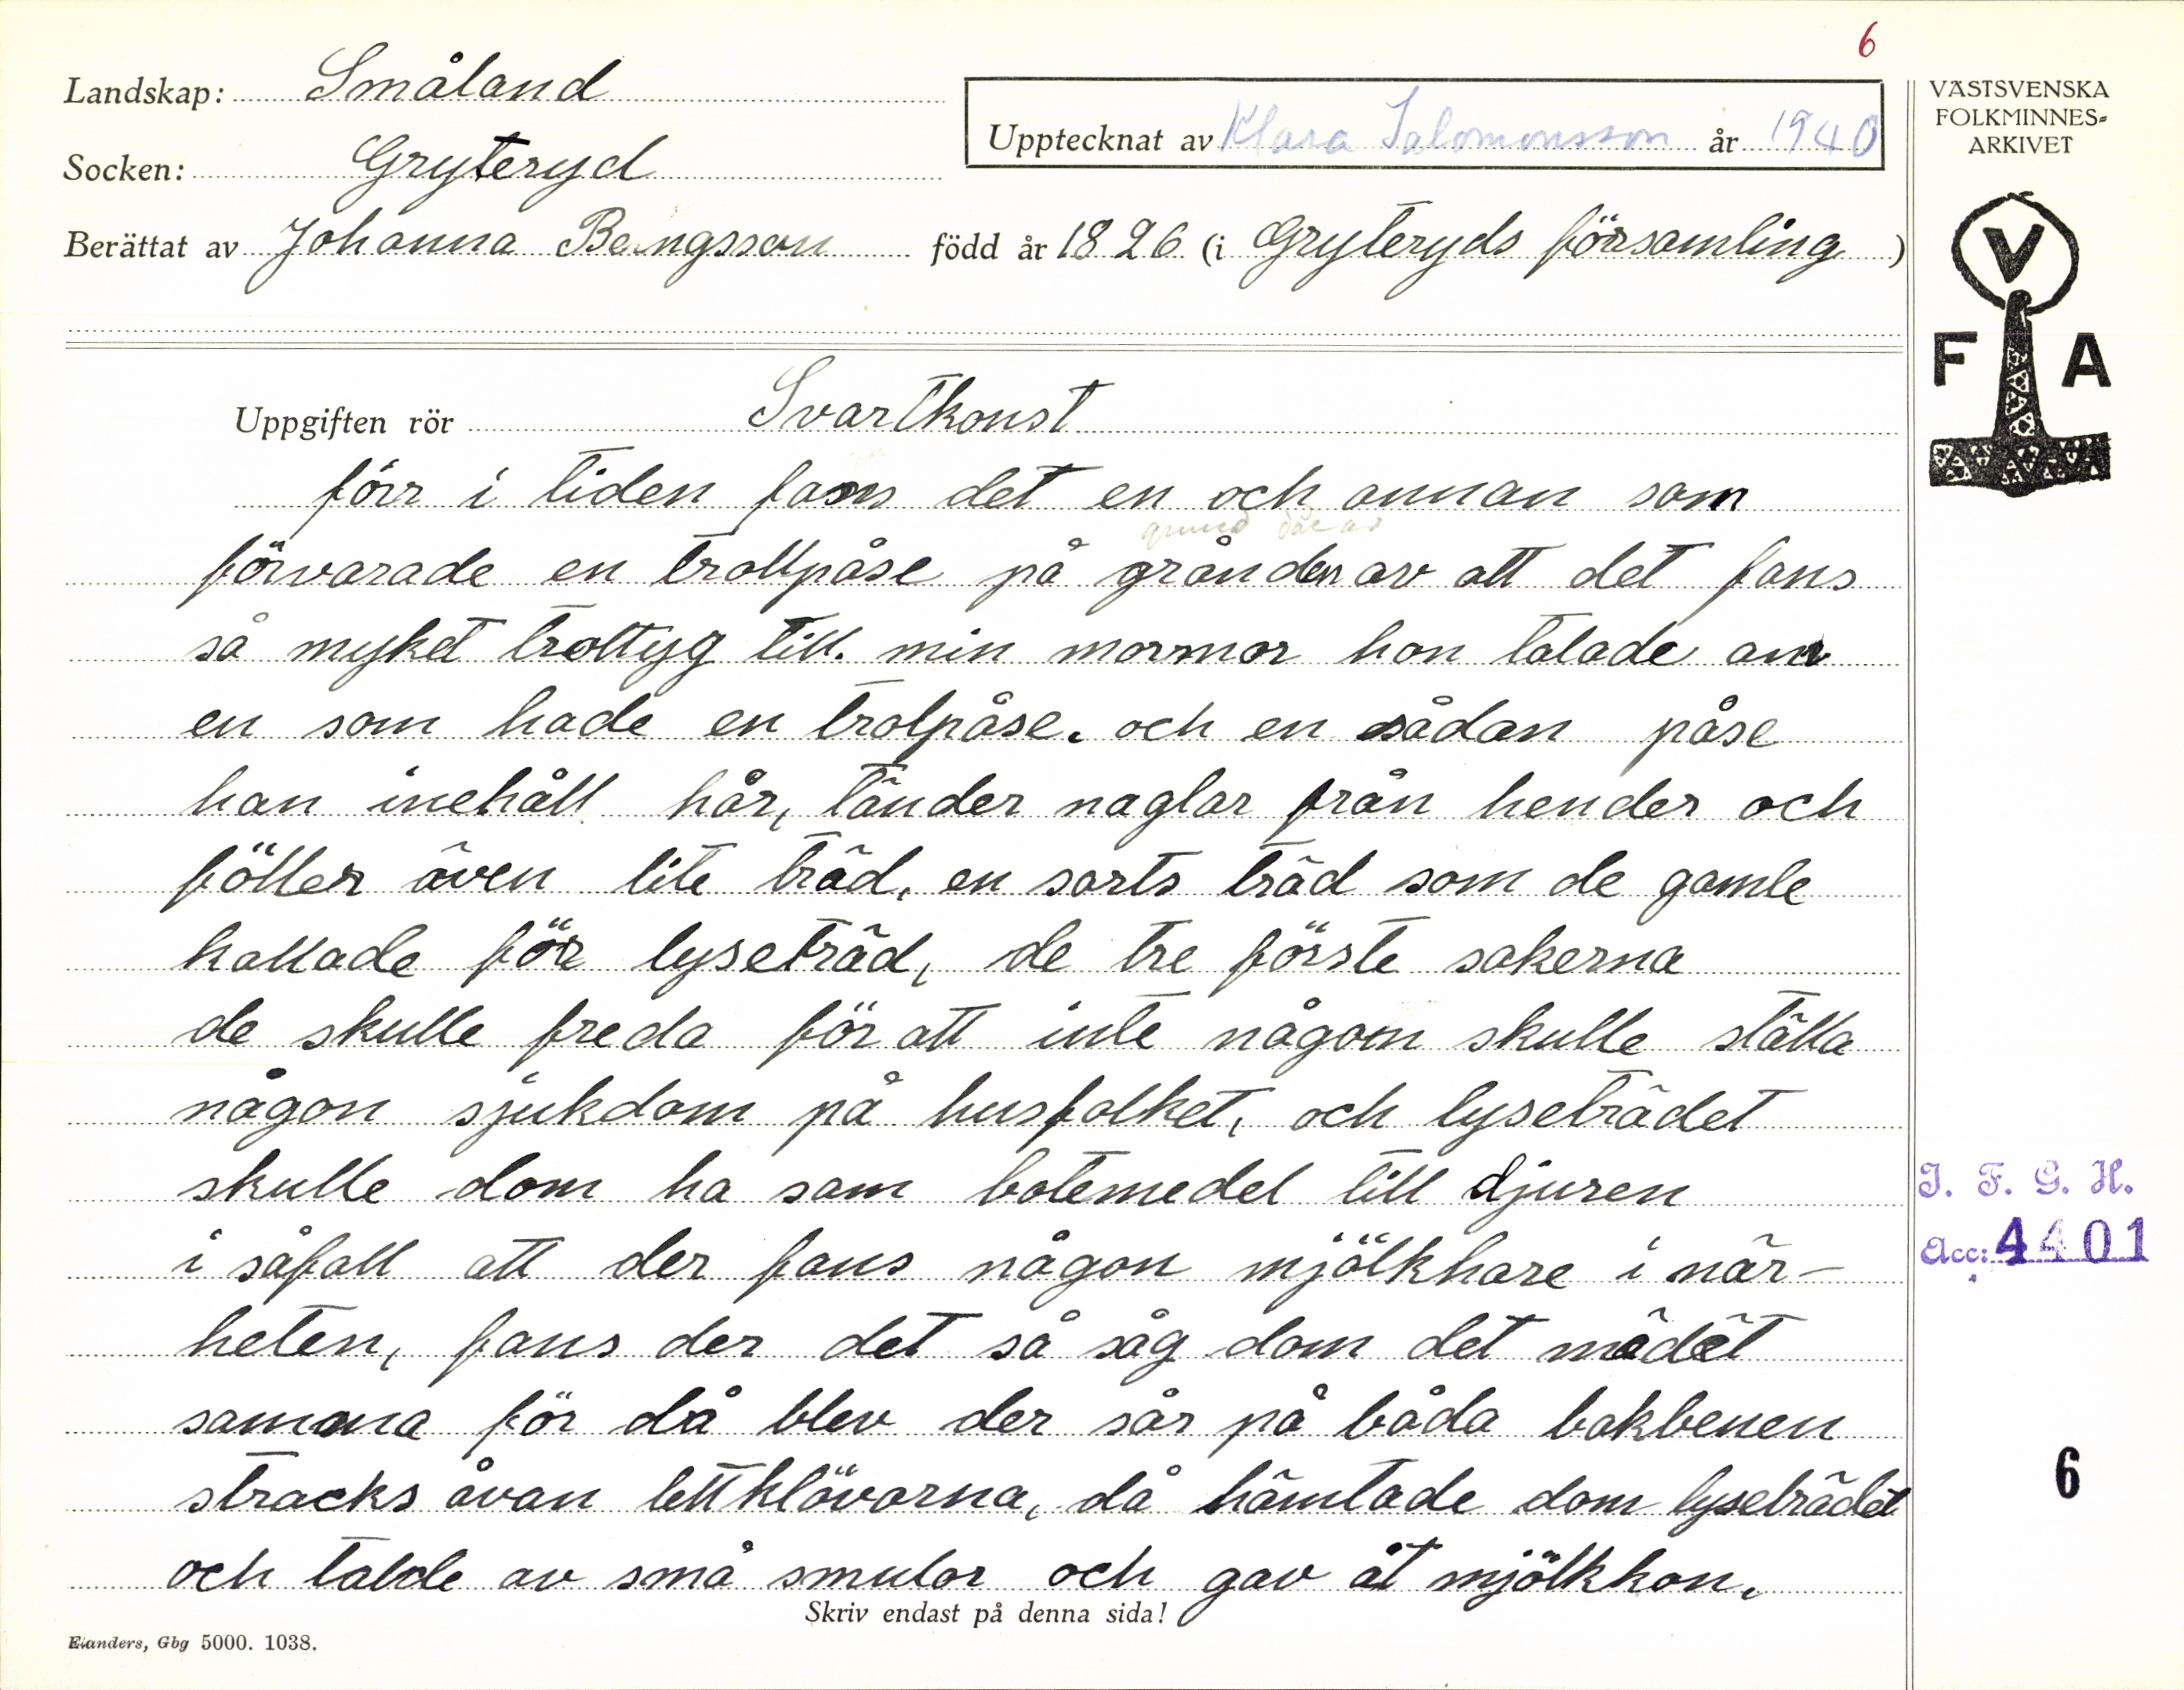 6
Landskap: Småland
Socken: Gryteryd
Upptecknat av Klara Salomonsson år 1940
Berättat av Johanna Bengsson född år 1826 (i Gryteryds församling)
VÄSTSVENSKA
FOLKMINNES=
ARKIVET
V
F A
Uppgiften rör Svartkonst
förr i tiden fans det en och annan som
grund där av
förvarade en trollpåse på grånden av att det fans
så myket troltyg till. min mormor hon talade om
en som hade en trolpåse. och en sådan påse
han inehåll hår, tänder naglar från hender och
fötter även lite träd, en sorts träd som de gamle
kallade för lyseträd, de tre förste sakerna
de skulle freda för att inte någon skulle ställa
någon sjukdom på husfolket, och lyseträdet
skulle dom ha som botemedel till djuren
i såfall att der fans någon mjölkhare i när-
heten, fans der det så såg dom det mädët
samma för då blev der sår på båda bakbenen
stracks åvan lettklövarna, då hämtade dom lyseträdet
och talde av små smular och gav åt mjölkkon.
Skriv endast på denna sida!
Elanders, Gbg 5000. 1038.
I. F. G. H.
Acc: 4401
6